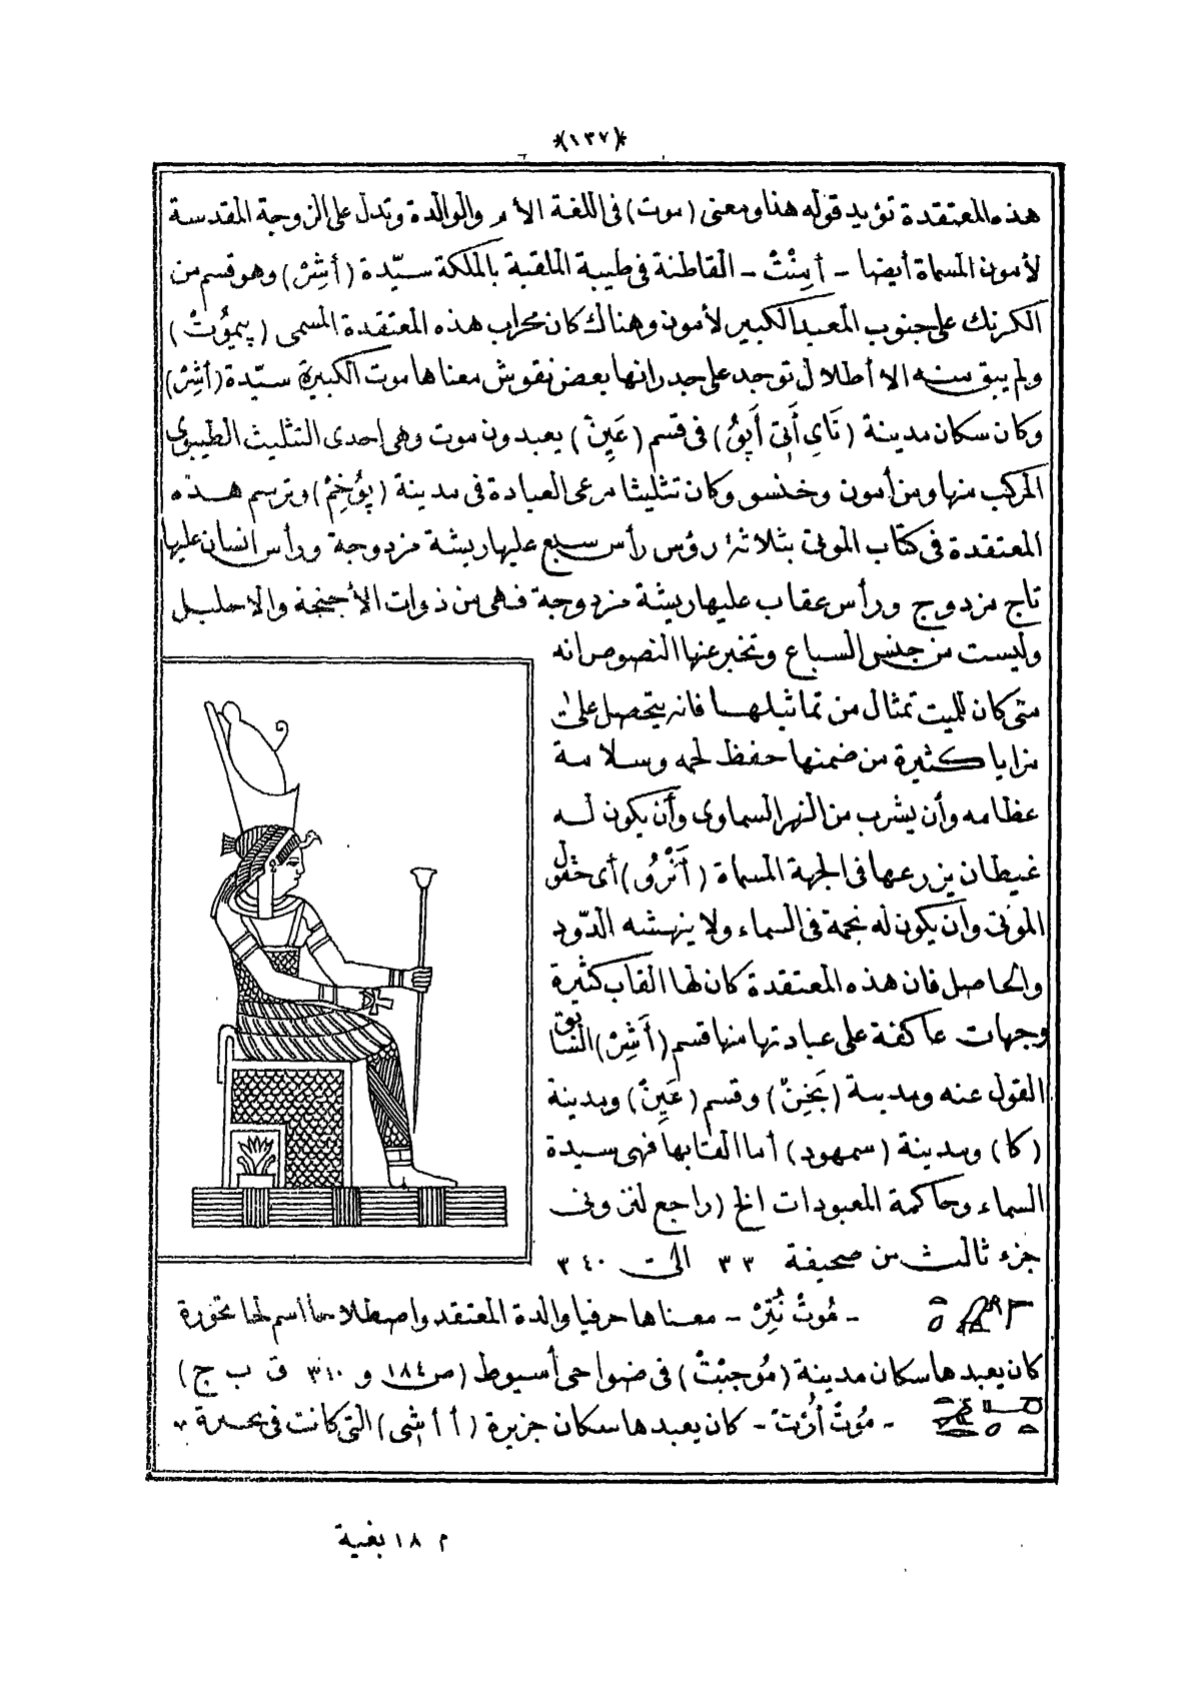 *(١٣٧)*
هذه المعتقدة تؤيد قوله هنا ومعنى (موت) فى اللغة الأم والوالدة وتدل على الزوجة المقدسة
لأمون المسماة أيضا - أمِنْتْ - القاطنة فى طيبة الملقبة بالملكة سيّدة (أشِرْ) وهو قسم من
الكرنك على جنوب المعبد الكبير لأمون وهناك كان محراب هذه المعتقدة المسمى (پِمِوُتْ)
ولم يبق منه الا أطلال توجد على جدرانها بعض نقوش معناها موت الكبيرة سيّدة (أشِرْ)
وكان سكان مدينة (نَاىِ أَنِىَ أَپِوُ) فى قسم (عَيِنْ) يعبدون موت وهى احدى التثليث الطيبوى
المركب منها ومن أمون وخنسو وكان تثليثا مرعى العبادة فى مدينة (پِوُخِمْ) وترسم هذه
المعتقدة فى كتاب الموتى بثلاثة رؤس رأس سبع عليها ريشة مزدوجة ورأس انسان عليها
تاج مزدوج ورأس عقاب عليها ريشة مزدوجة فهى من ذوات الأجنحة والاحليل
وليست من جنس السباع وتخبر عنها النصوص انه
متى كان للميت تمثال من تماثيلها فانه يتحصل على
مزايا كثيرة من ضمنها حفظ لحمه وسلامة
عظامه وأن يشرب من النهر السماوى وأن يكون له
غيطان يزرعها فى الجهة المسماة (أَنْرُو) أى حقول
الموتى وأن يكون له نجمة فى السماء ولا ينهشه الدّود
والحاصل فان هذه المعتقدة كان لها القاب كثيرة
وجهات عاكفة على عبادتها منها قسم (أَشِرْ) السابق
القول عنه ومدينة (بَخِنْ) وقسم (عَيِنْ) ومدينة
(كا) ومدينة (سمهود) أما القابها فهى سيدة
السماء وحاكمة المعبودات الخ (راجع لنزونى
جزء ثالث من صحيفة ٣٣ الى ٣٤٠
- مُوتْ نُتِرْ - معناها حرفيا والدة المعتقد واصطلاحا اسم لحاتحورة
كان يعبدها سكان مدينة (مُوجِنْتْ) فى ضواحى أسيوط (ص ١٨٤ و ٣١٠ ق ب ج)
- مُوتْ أُرْتْ - كان يعبدها سكان جزيرة (أ أ أشى) التى كانت فى بحيرة
م ١٨ بغية